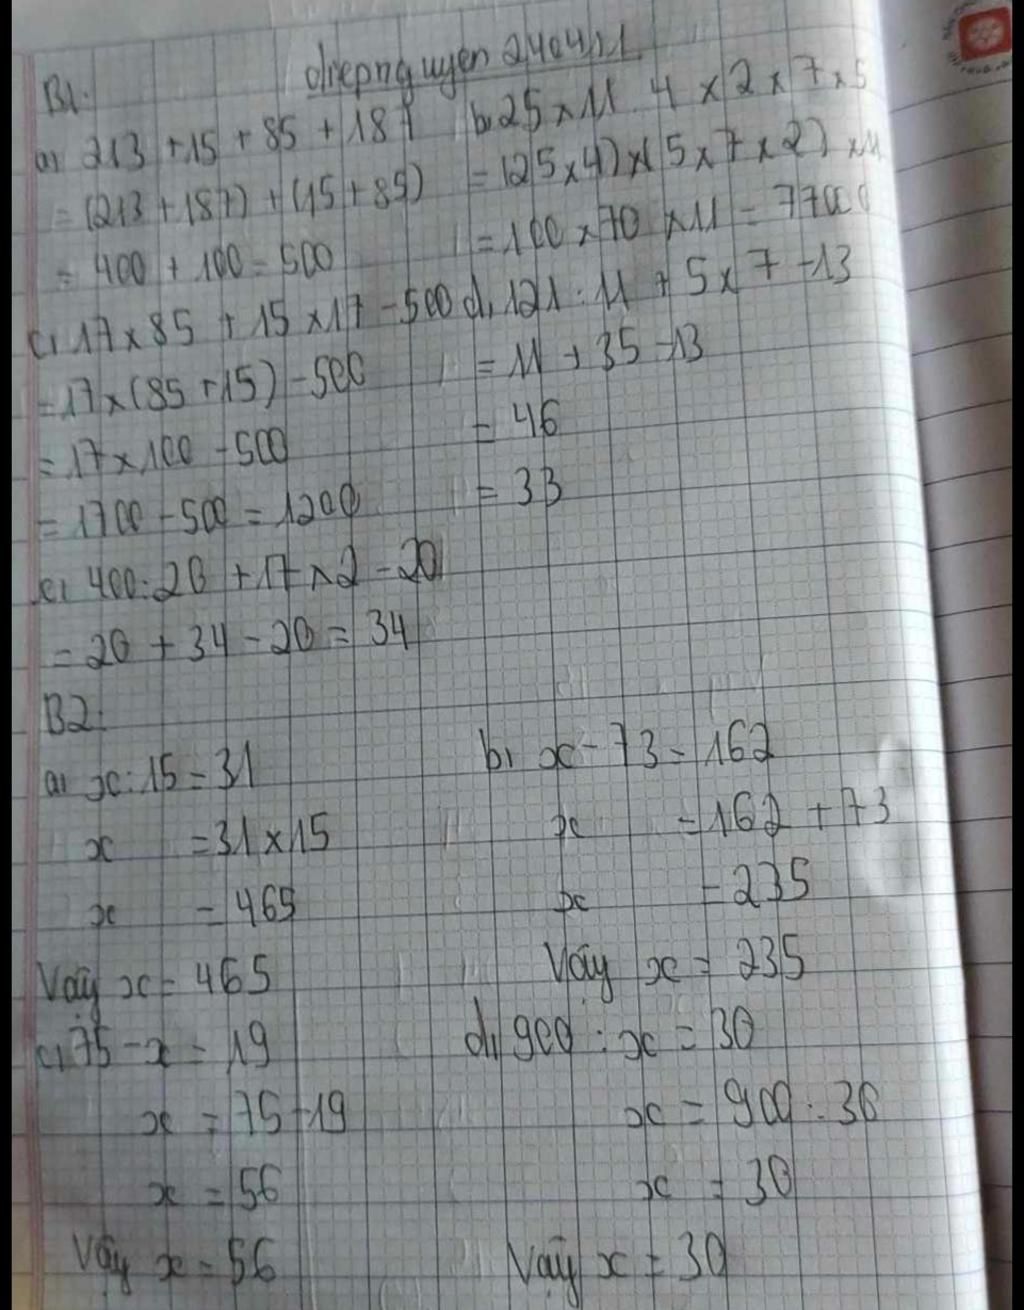 diepnguyen240411
B1.
a, 213 +15 + 85 + 187
= (213 + 187) + (15 + 85)
= 400 + 100 = 500
b, 25 x 11 4 x 2 x 7 x 5
= (25 x 4) x (5 x 7 x 2) x 11
= 100 x 70 x 11 = 77000
c, 17 x 85 + 15 x 17 - 500
= 17 x (85 + 15) - 500
= 17 x 100 - 500
= 1700 - 500 = 1200
d, 121 : 11 + 5 x 7 - 13
= 11 + 35 - 13
= 46
= 33
e, 400 : 20 + 17 x 2 - 20
= 20 + 34 - 20 = 34
B2:
a, x : 15 = 31
x = 31 x 15
x = 465
Vậy x = 465
b, x - 73 = 162
x = 162 + 73
x = 235
Vậy x = 235
c, 75 - x = 19
x = 75 - 19
x = 56
Vậy x = 56
d, 900 : x = 30
x = 900 : 30
x = 30
Vậy x = 30